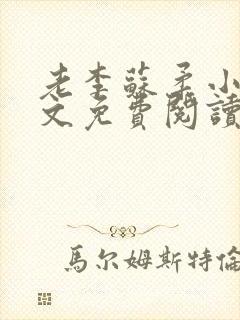 老李蘇柔小
文免費閱讀
馬尔姆斯特倫